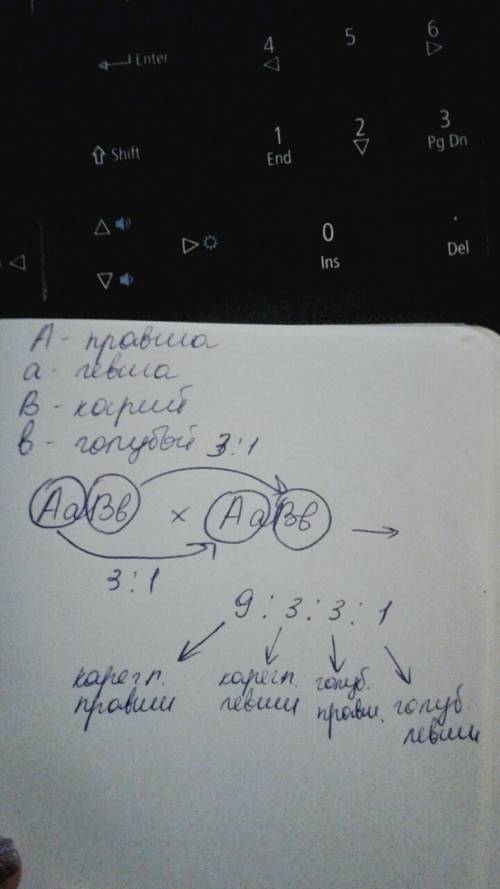 4 5 6
Enter
1 2 3
Shift End Pg Dn
0 .
Ins Del
А - правша
а - левша
В - карий
в - голубой 3:1
АаВв × АаВв →
3:1
9 : 3 : 3 : 1
карегл. карегл. голуб. голуб.
правши левши правш. левши